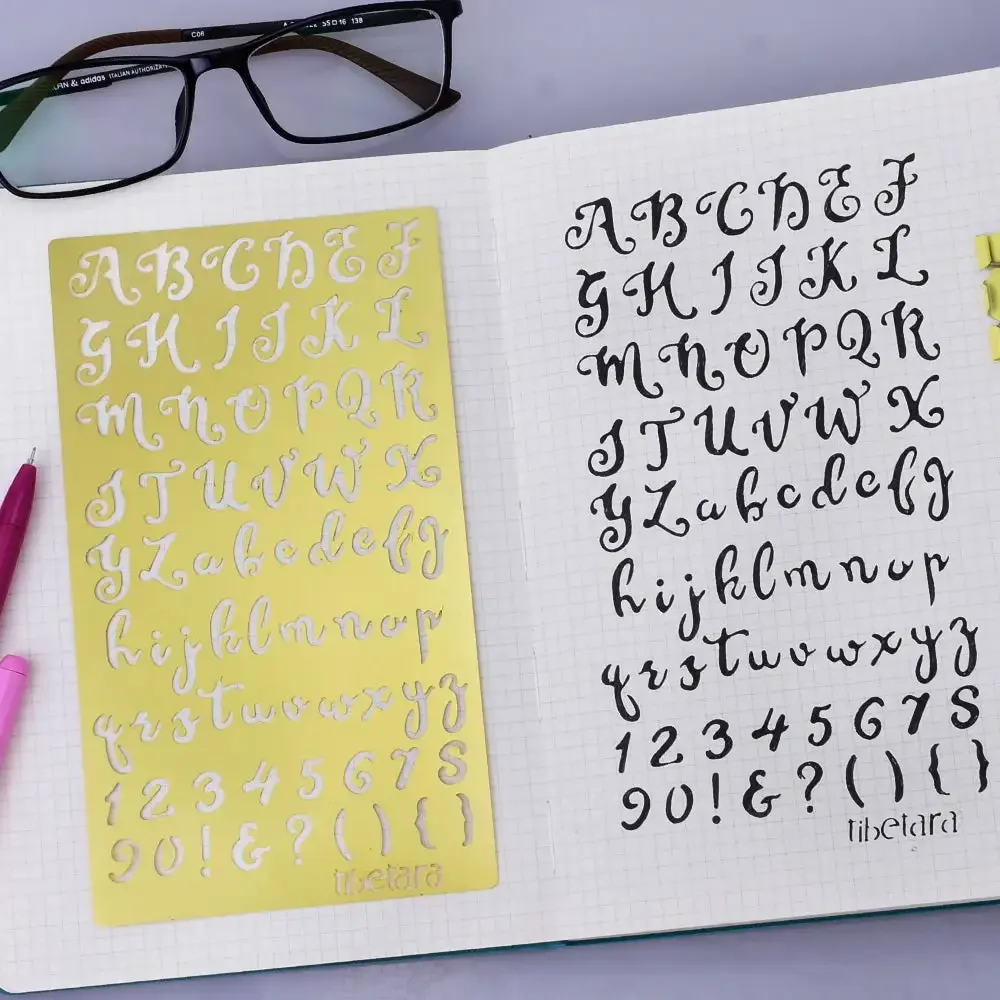 C06
55□16 138
& adidas ITALIAN AUTHORIZATI
A B C D E F
G H I J K L
M N O P Q R
S T U V W X
Y Z a b c d e f g
h i j k l m n o p
q r s t u v w x y z
1 2 3 4 5 6 7 8
9 0 ! & ? ( ) { }
tibetara
A B C D E F
G H I J K L
M N O P Q R
S T U V W X
Y Z a b c d e f g
h i j k l m n o p
q r s t u v w x y z
1 2 3 4 5 6 7 8
9 0 ! & ? ( ) { }
tibetara